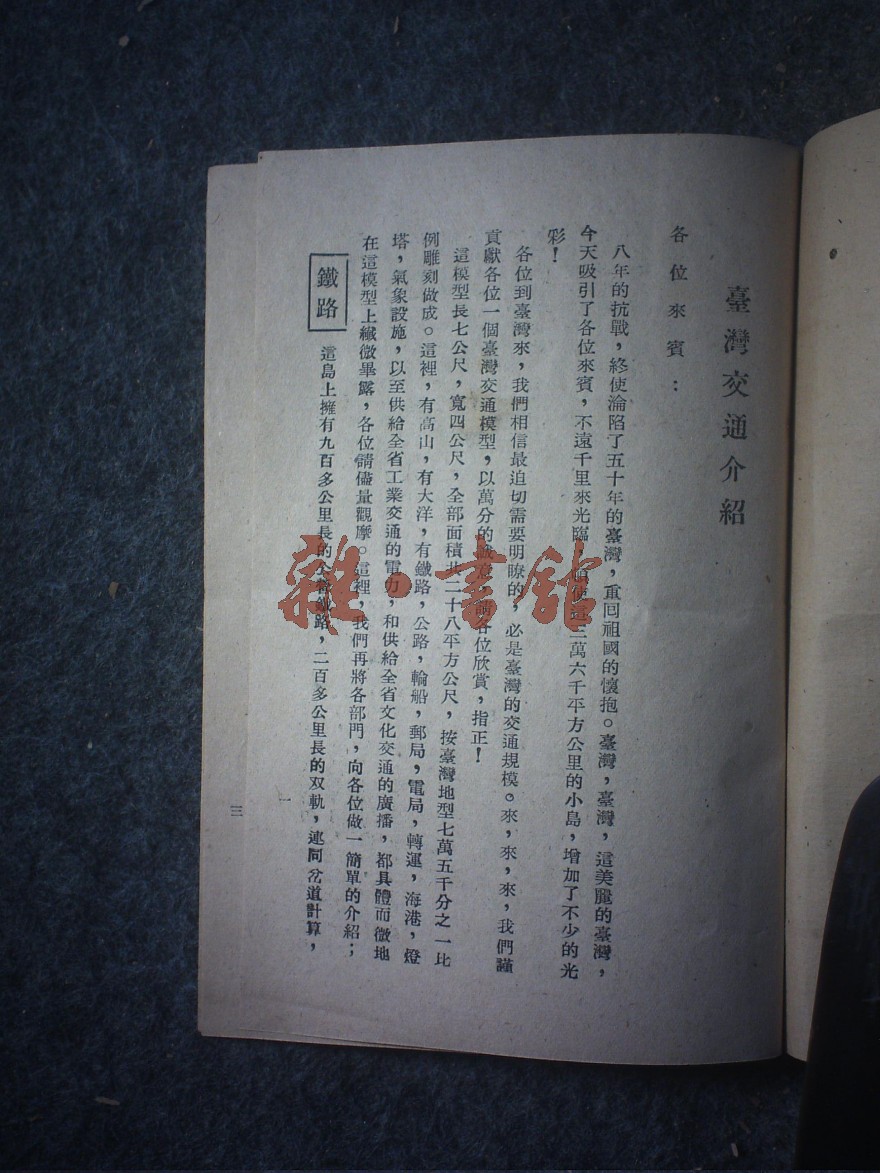 臺灣交通介紹
各位來賓：
八年的抗戰，終使淪陷了五十年的臺灣，重回祖國的懷抱。臺灣，臺灣，這美麗的臺灣，
今天吸引了各位來賓，不遠千里來光臨，使這三萬六千平方公里的小島，增加了不少的光
彩！
各位到臺灣來，我們相信最迫切需要明瞭的，必是臺灣的交通規模。來，來，來，我們謹
貢獻各位一個臺灣交通模型，以萬分的誠意，請各位欣賞，指正！
這模型長七公尺，寬四公尺，全部面積共二十八平方公尺，按臺灣地型七萬五千分之一比
例雕刻做成。這裡，有高山，有大洋，有鐵路，公路，輪船，郵局，電局，轉運，海港，燈
塔，氣象設施，以至供給全省工業交通的電力，和供給全省文化交通的廣播，都具體而微地
在這模型上纖微畢露，各位請儘量觀摩。這裡，我們再將各部門，向各位做一簡單的介紹；
鐵路 這島上擁有九百多公里長的公營鐵路，二百多公里長的双軌，連同岔道計算，
一
三
雜·書館